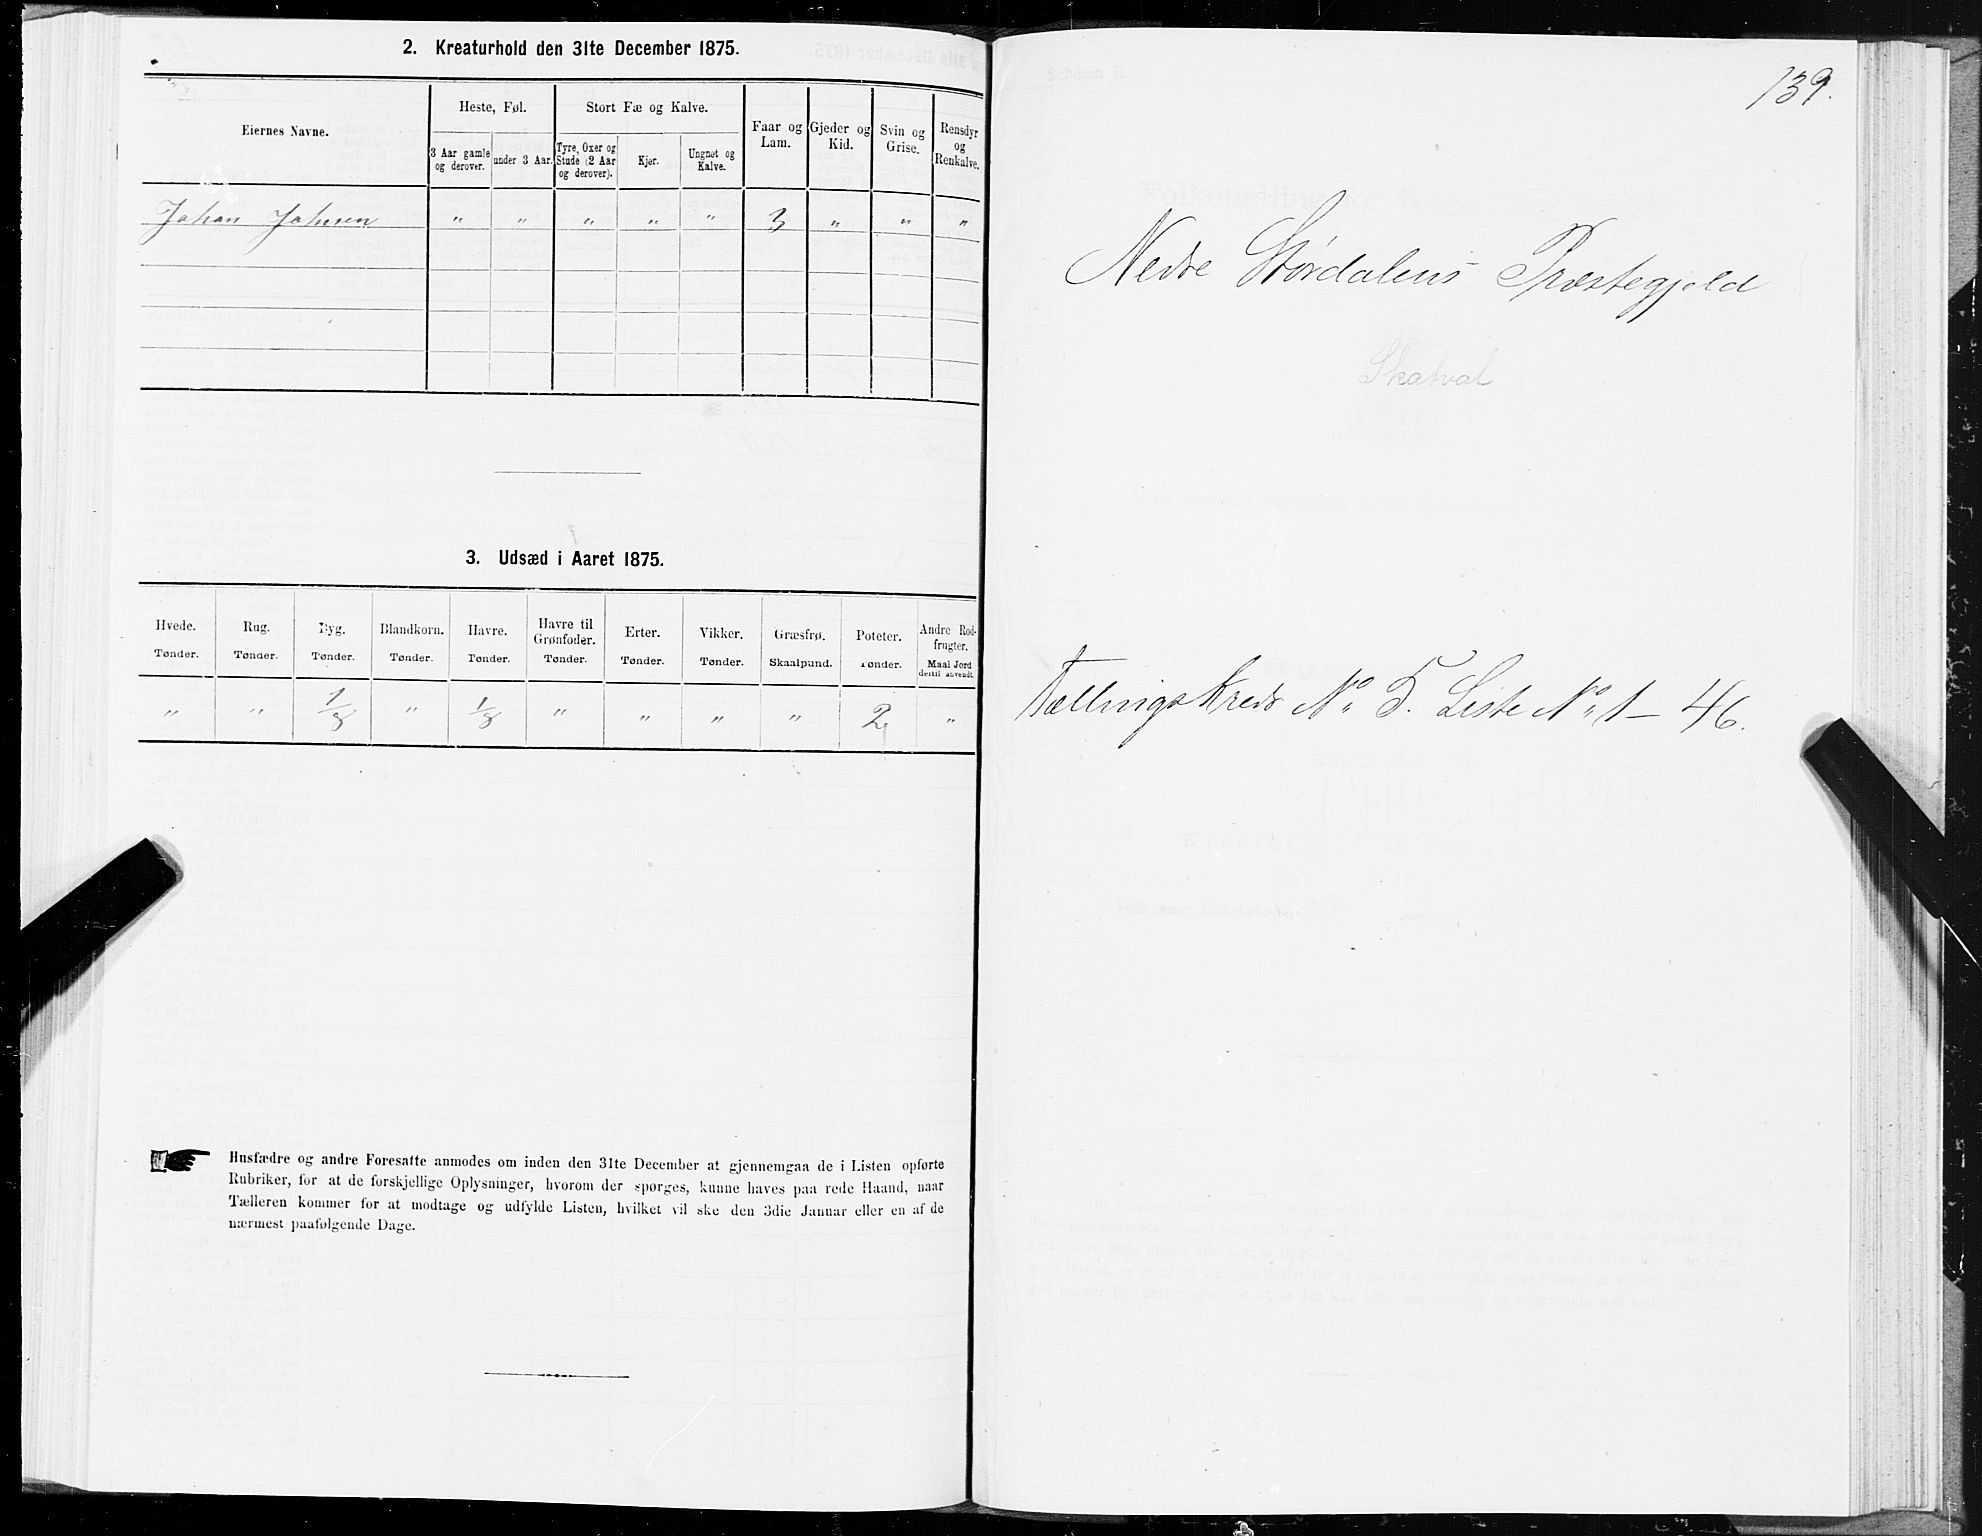 2. Kreaturhold den 31te December 1875.
Eiernes Navne.
Heste, Føl.
Stort Fæ og Kalve.
Faar og Lam.
Gjeder og Kid.
Svin og Grise.
Rensdyr og Renkalve.
3 Aar gamle og derover.
under 3 Aar.
Tyre, Oxer og Stude (2 Aar og derover).
Kjør.
Ungnøt og Kalve.
Johan Johnsen " " " " " 3 " " "
3. Udsæd i Aaret 1875.
Hvede. Tønder.
Rug. Tønder.
Byg. Tønder.
Blandkorn. Tønder.
Havre. Tønder.
Havre til Grønfoder. Tønder.
Erter. Tønder.
Vikker. Tønder.
Græsfrø. Skaalpund.
Poteter. Tønder.
Andre Rodfrugter. Maal Jord dertil anvendt.
" " 1/8 " 1/8 " " " " 2 "
Husfædre og andre Foresatte anmodes om inden den 31te December at gjennemgaa de i Listen opførte
Rubriker, for at de forskjellige Oplysninger, hvorom der spørges, kunne haves paa rede Haand, naar
Tælleren kommer for at modtage og udfylde Listen, hvilket vil ske den 3die Januar eller en af de
nærmest paafølgende Dage.
139.
Nedre Størdalens Præstegjeld
Skatval
Tællingskreds No 5. Liste No 1 – 46.